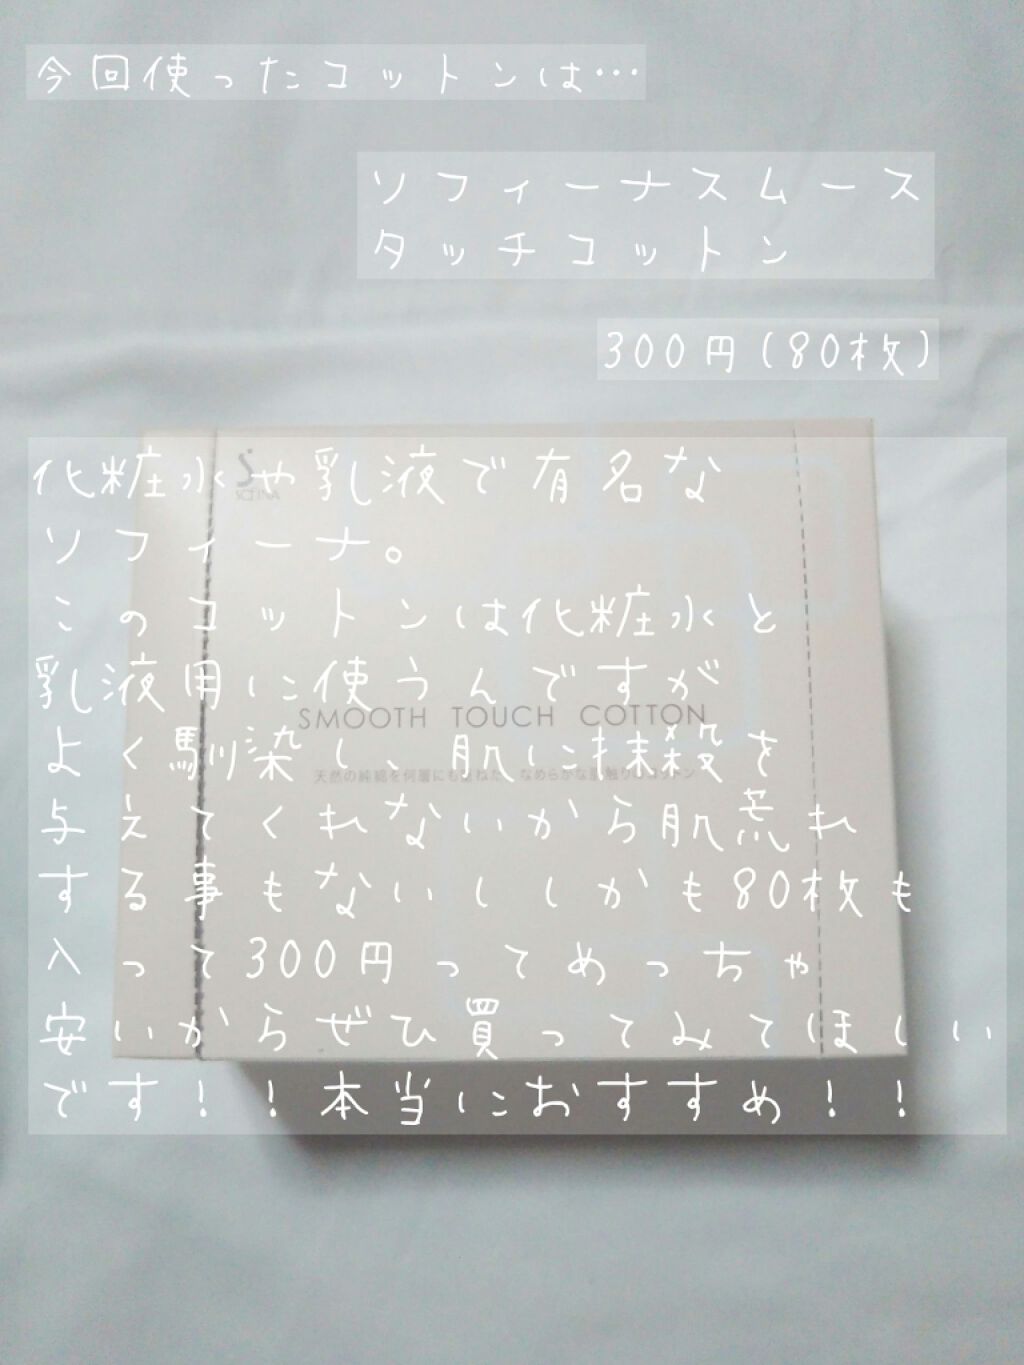 今回使ったコットンは…
ソフィーナスムース
タッチコットン
300円(80枚)
化粧水や乳液で有名な
ソフィーナ。
このコットンは化粧水と
乳液用に使うんですが
SMOOTH TOUCH COTTON
よく馴染し、肌に抹殺を
天然の純綿を何層にも重ねた、なめらかな肌触りのコットン
与えてくれないから肌荒れ
する事もないししかも80枚も
入って300円ってめっちゃ
安いからぜひ買ってみてほしい
です！！本当におすすめ！！